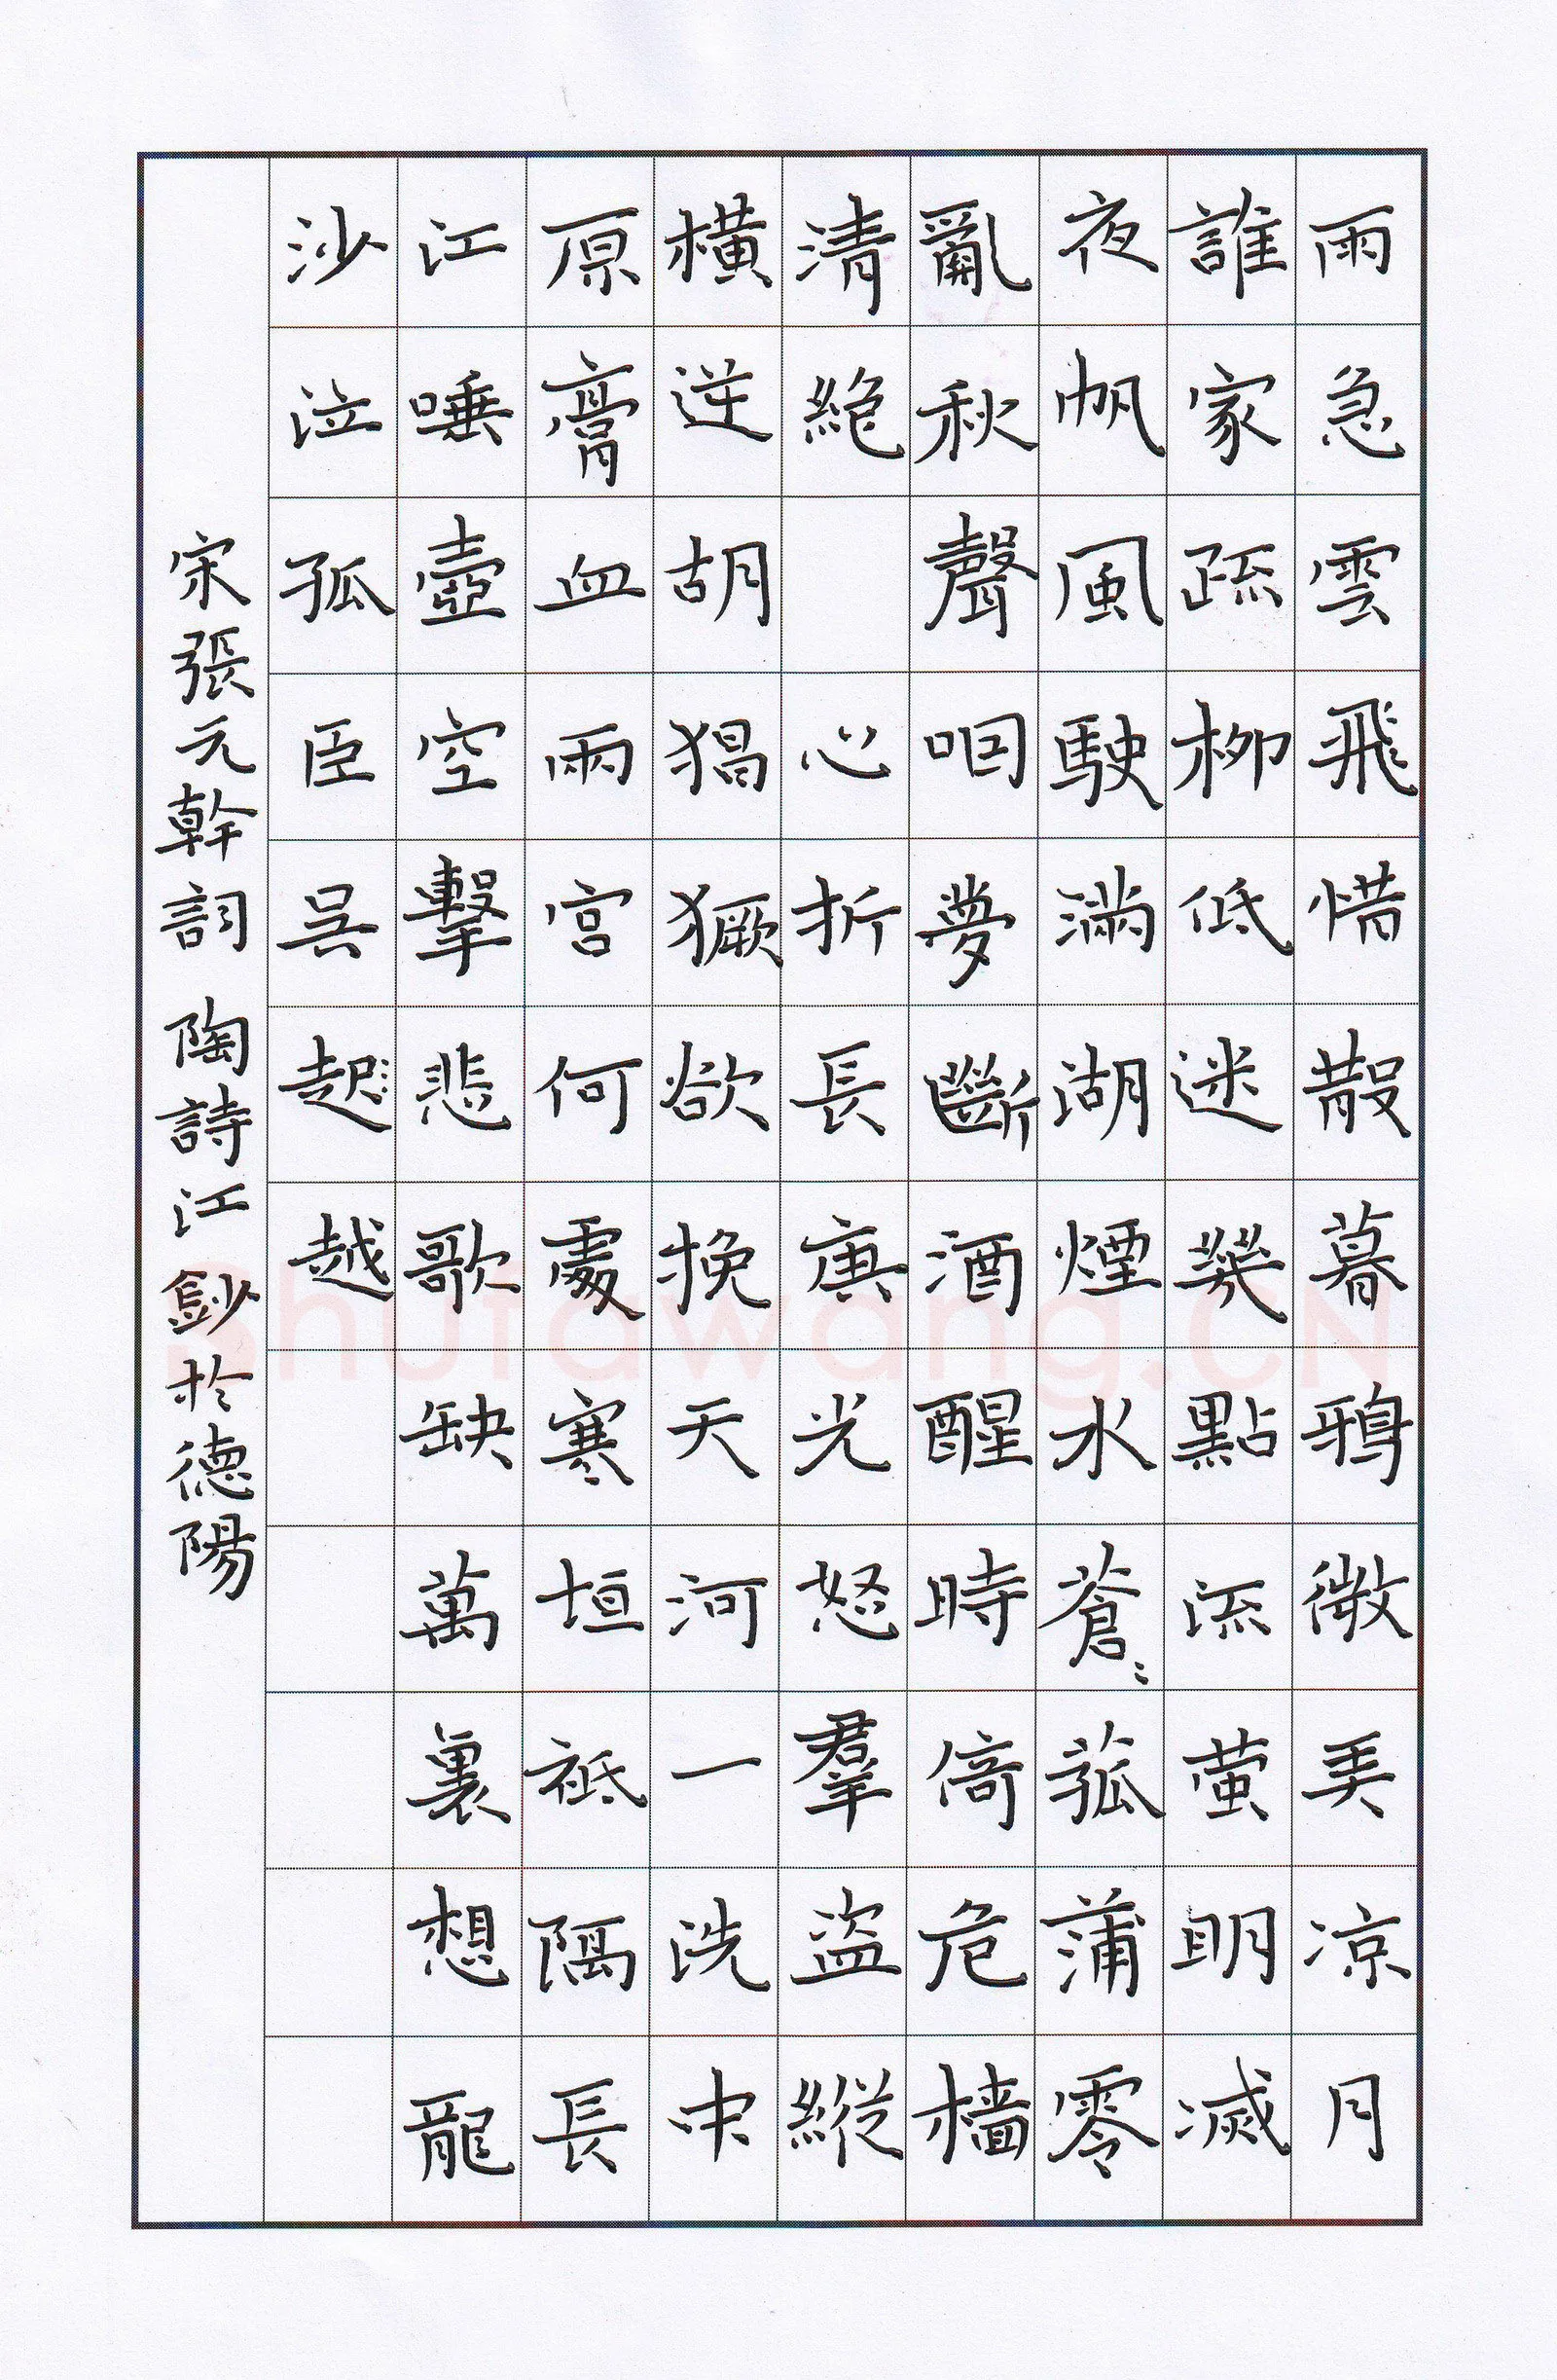 雨急雲飛惜散暮鴉微弄凉月
誰家疏柳低迷幾點流萤明滅
夜帆風駛滿湖煙水蒼〻菰蒲零
亂秋聲咽夢斷酒醒時倚危檣
清絶 心折長庚光怒羣盜縱
橫逆胡猖獗欲挽天河一洗中
原膏血兩宮何處寒垣祗隔長
江唾壺空擊悲歌缺萬裏想龍
沙泣孤臣吳起越
宋張元幹詞 陶詩江鈔於德陽
Shufawang.CN